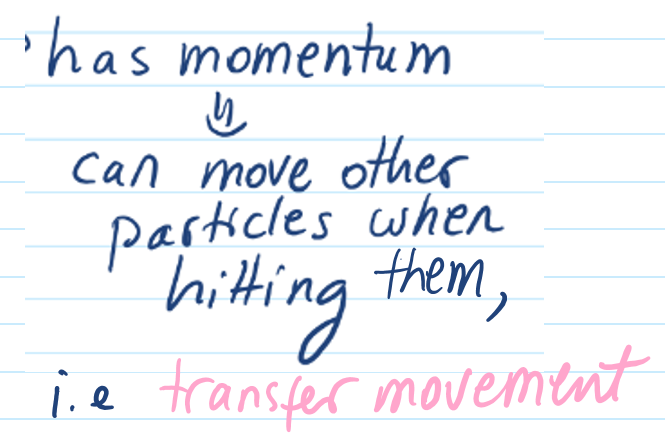 has momentum
⇓
can move other
particles when
hitting them,
i.e transfer movement